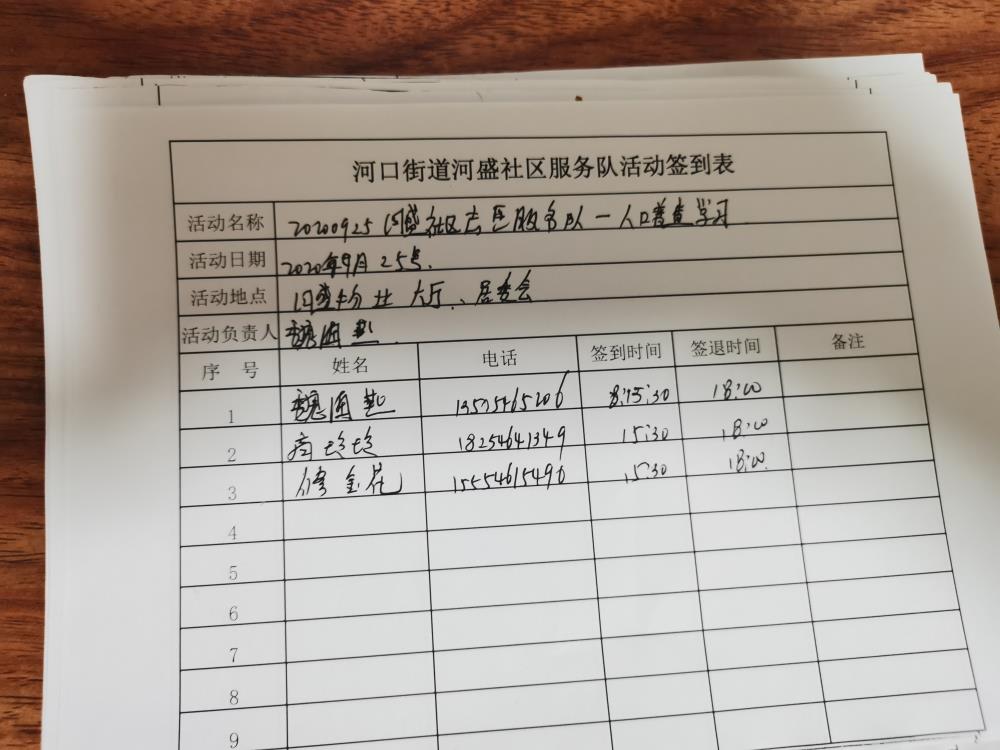 河口街道河盛社区服务队活动签到表
活动名称 20200925河盛社区志愿服务队一人口普查学习
活动日期 2020年9月25号.
活动地点 河盛 社 大厅、居委会
活动负责人 魏
序号 姓名 电话 签到时间 签退时间 备注
1 魏 13505465206 8:15:30 18:00
2 商珍珍 18254641349 15:30 18:00
3 修金花 15554615496 15:30 18:00
4
5
6
7
8
9